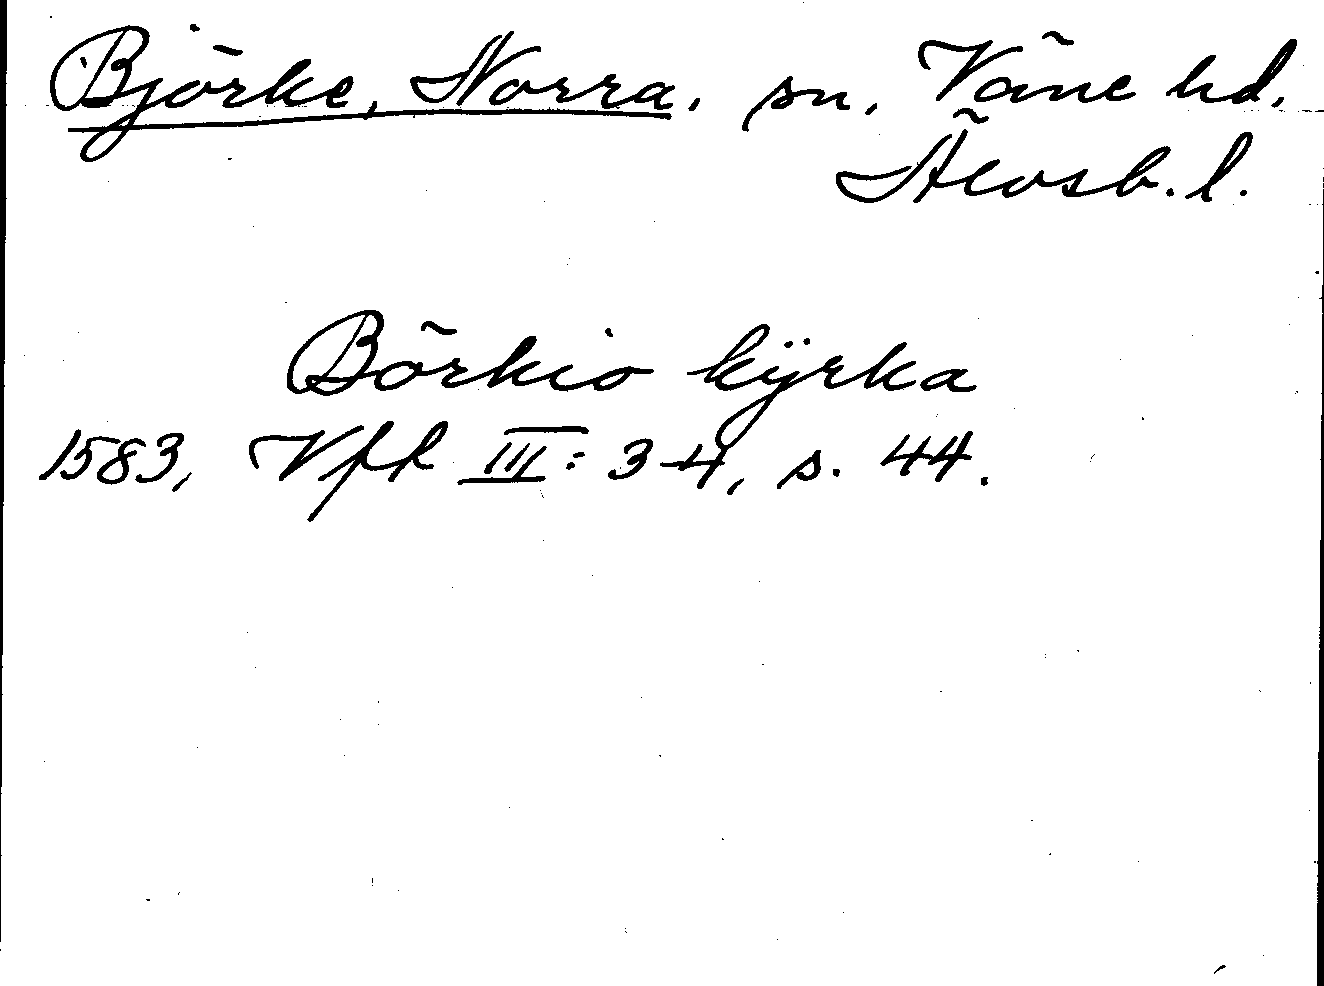 Björke, Norra, sn, Väne hd.
Älvsb. l.
Börkio kÿrka
1583, Vfl III: 3-4, s. 44.